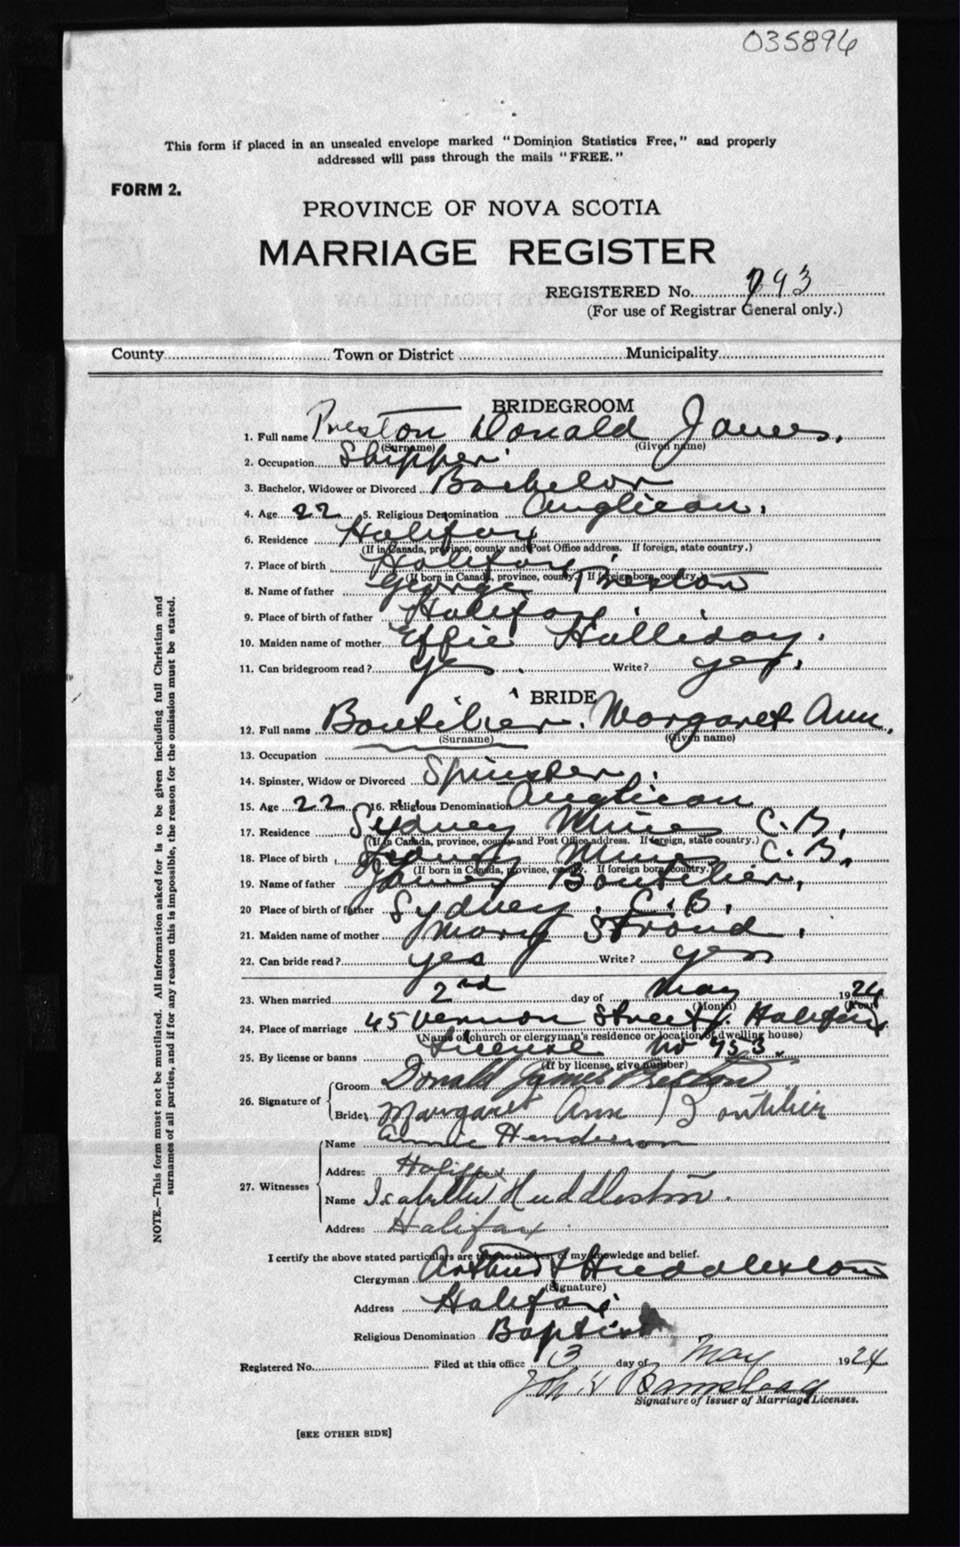 035896
This form if placed in an unsealed envelope marked "Dominion Statistics Free," and properly
addressed will pass through the mails "FREE."
FORM 2.
PROVINCE OF NOVA SCOTIA
MARRIAGE REGISTER
REGISTERED No. 793
(For use of Registrar General only.)
County Town or District Municipality
BRIDEGROOM
1. Full name Preston Donald James.
(Surname) (Given name)
2. Occupation Shipper.
3. Bachelor, Widower or Divorced Bachelor
4. Age 22 5. Religious Denomination Anglican.
6. Residence Halifax
(If in Canada, province, county and Post Office address. If foreign, state country.)
7. Place of birth Halifax
(If born in Canada, province, county. If foreign born, country.)
8. Name of father George Preston
9. Place of birth of father Halifax.
10. Maiden name of mother Effie Halliday.
11. Can bridegroom read? yes. Write? yes.
BRIDE
12. Full name Boutilier. Margaret Ann.
(Surname) (Given name)
13. Occupation
14. Spinster, Widow or Divorced Spinster.
15. Age 22 16. Religious Denomination Anglican
17. Residence Sydney Mines C.B.
(If in Canada, province, county and Post Office address. If foreign, state country.)
18. Place of birth Sydney Mines C.B.
(If born in Canada, province, county. If foreign born, country.)
19. Name of father James Boutilier.
20 Place of birth of father Sydney. C.B.
21. Maiden name of mother Mary Stroud.
22. Can bride read? yes Write? yes
23. When married 2nd day of May 1924
(Month) (Year)
24. Place of marriage 45 Vernon Street, Halifax
(Name of church or clergyman's residence or location of dwelling house)
25. By license or banns License No 953.
(If by license, give number)
26. Signature of Groom Donald James Preston
Bride Margaret Ann Boutilier
27. Witnesses Name Annie Henderson
Address Halifax
Name Isabelle Huddleston.
Address Halifax.
I certify the above stated particulars are true to the best of my knowledge and belief.
Clergyman Arthur Huddleston
(Signature)
Address Halifax
Religious Denomination Baptist
Registered No. Filed at this office 13 day of May 1924
Signature of Issuer of Marriage Licenses.
[SEE OTHER SIDE]
NOTE.—This form must not be mutilated. All information asked for is to be given including full Christian and
surnames of all parties, and if for any reason this is impossible, the reason for the omission must be stated.